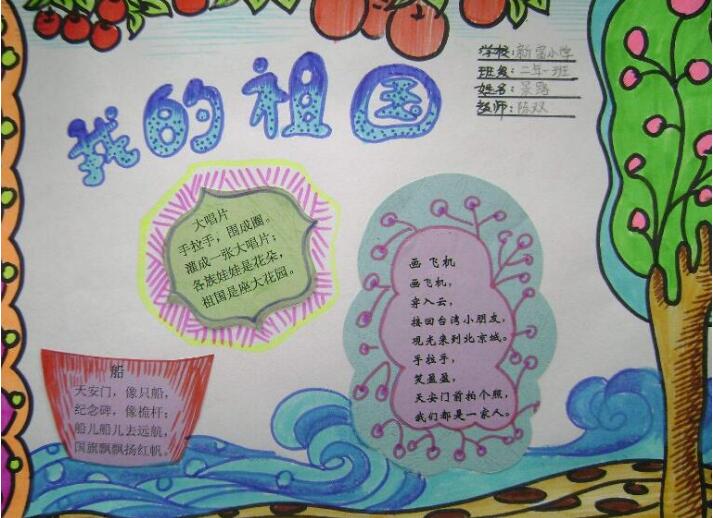 我的祖国
学校:新宝小学
班级:二年一班
姓名:景璐
教师:陈双
大唱片
手拉手,围成圈。
灌成一张大唱片;
各族娃娃是花朵,
祖国是座大花园。
画飞机
画飞机,
穿入云,
接回台湾小朋友,
观光来到北京城。
手拉手,
笑盈盈,
天安门前拍个照,
我们都是一家人。
船
天安门,像只船,
纪念碑,像桅杆;
船儿船儿去远航,
国旗飘飘扬红帆。